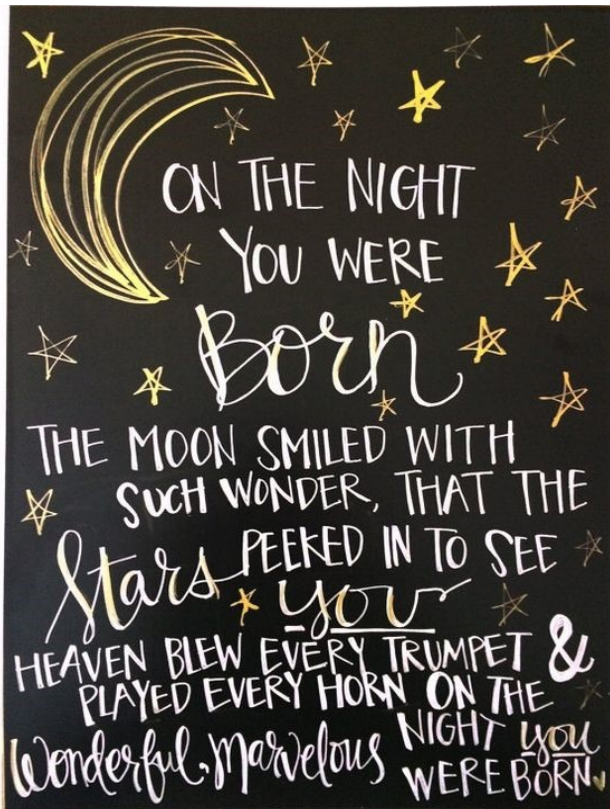 ON THE NIGHT
YOU WERE
Born
THE MOON SMILED WITH
SUCH WONDER, THAT THE
Stars PEEKED IN TO SEE
you
HEAVEN BLEW EVERY TRUMPET &
PLAYED EVERY HORN ON THE
Wonderful, Marvelous NIGHT you
WERE BORN